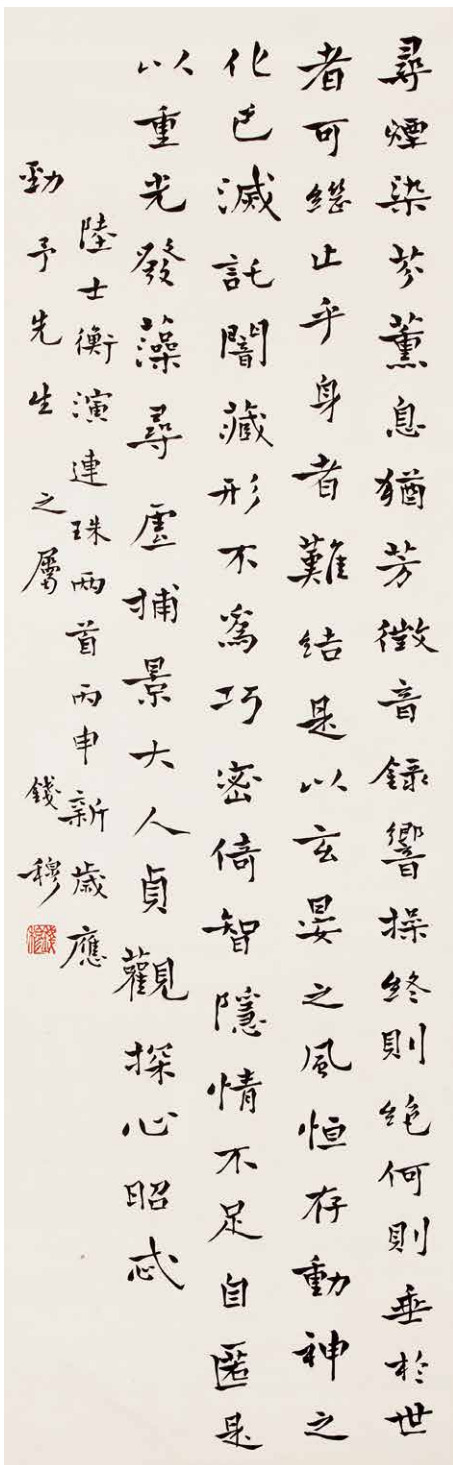 尋煙染芬薰息猶芳徵音錄響操終則絶何則垂於世
者可繼止乎身者難結是以玄晏之風恒存動神之
化已滅託闇藏形不爲巧密倚智隱情不足自匿是
以重光發藻尋虛捕景大人貞觀探心昭忒
陸士衡演連珠兩首丙申新歲應
勁予先生之屬 錢穆
錢穆